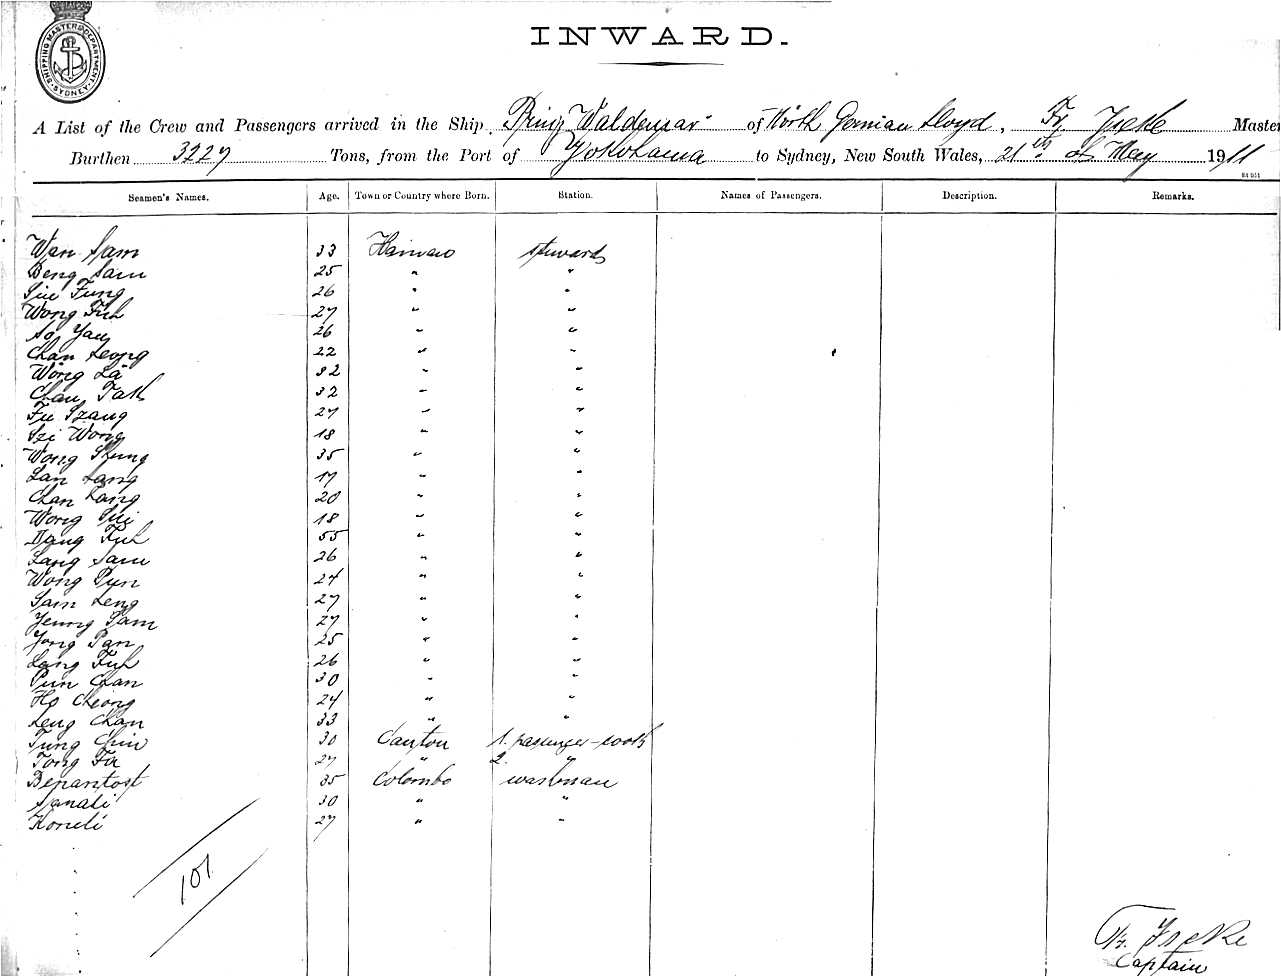 SHIPPING MASTER'S DEPARTMENT SYDNEY
INWARD.
A List of the Crew and Passengers arrived in the Ship, "Prinz Waldemar" of North German Lloyd, Fr. Master
Burthen 3227 Tons, from the Port of Yokohama to Sydney, New South Wales, 21th of May 1911
Seamen's Names. Age. Town or Country where Born. Station. Names of Passengers. Description. Remarks.
Wan Sam 33 Hainan stewards
Beng Sam 25 " "
Siu Fung 26 " "
Wong Fuh 27 " "
So Yau 26 " "
Chan Leong 22 " "
Wong La 32 " "
Chau Tak 32 " "
Fu Szang 27 " "
Szi Wong 18 " "
Wong Shung 35 " "
Lan Lang 17 " "
Chan Lang 20 " "
Wong Sui 18 " "
Dang Fuh 55 " "
Lang Sam 26 " "
Wong Pun 24 " "
Sam Leng 27 " "
Yeung Sam 27 " "
Yong Pan 25 " "
Lang Fuh 26 " "
Pun Chan 30 " "
Ho Cheong 24 " "
Leng Chan 33 " "
Tung Chiu 30 Canton 1. passenger-cook
Tong Fu 27 " 2. "
35 Colombo washman
Sanali 30 " "
27 " "
101
Fr.
Captain